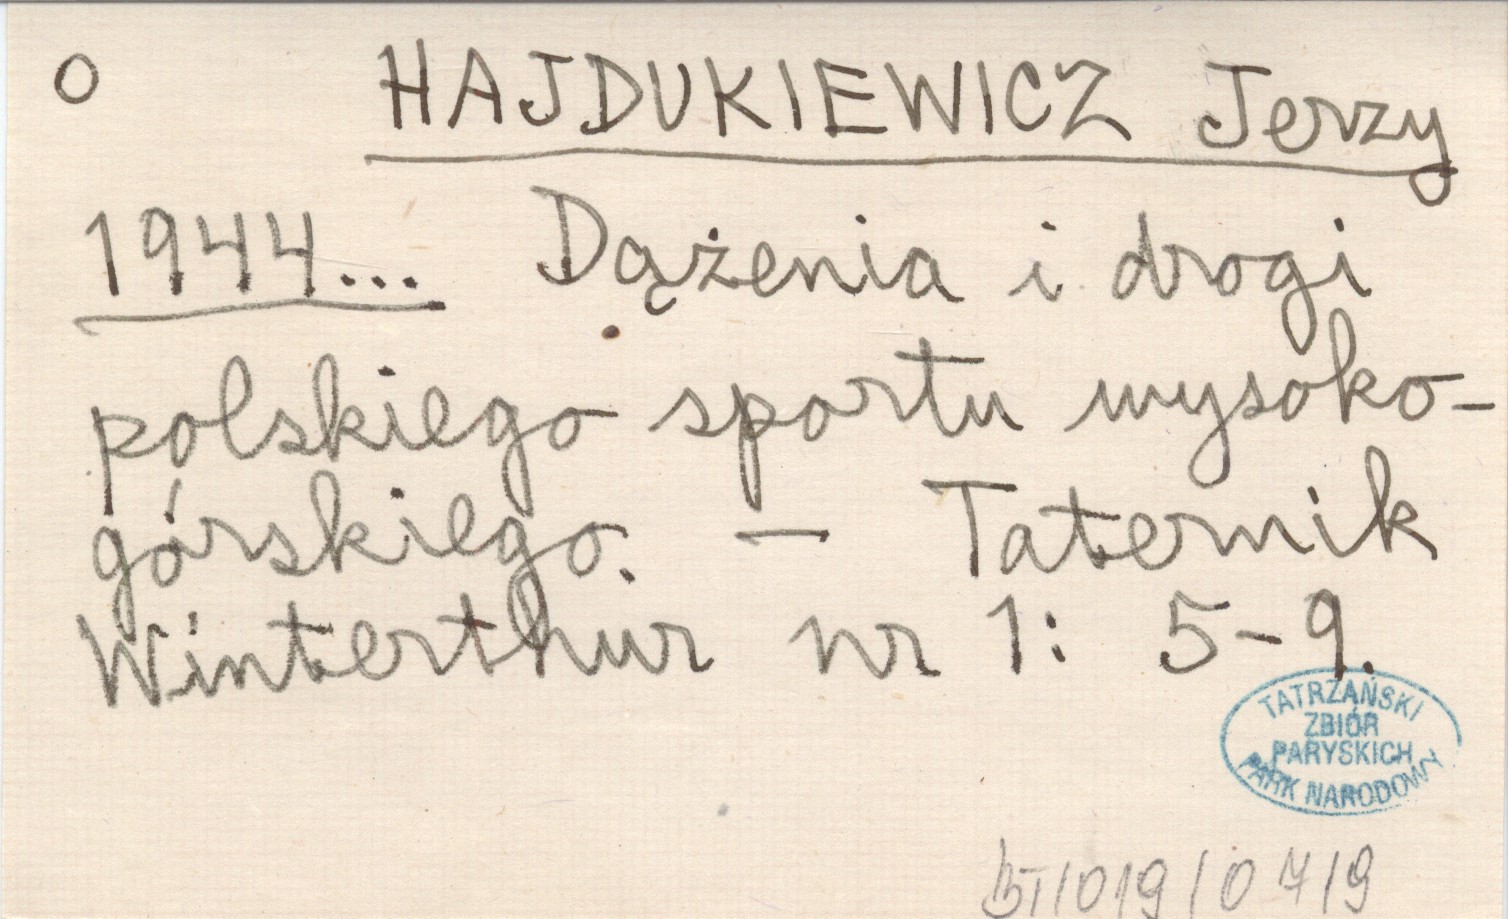 O HAJDUKIEWICZ Jerzy
1944... Dążenia i drogi
polskiego sportu wysoko-
górskiego. — Taternik
Winterthur nr 1: 5-9.
TATRZAŃSKI
ZBIÓR
PARYSKICH
PARK NARODOWY
BT/019/0719